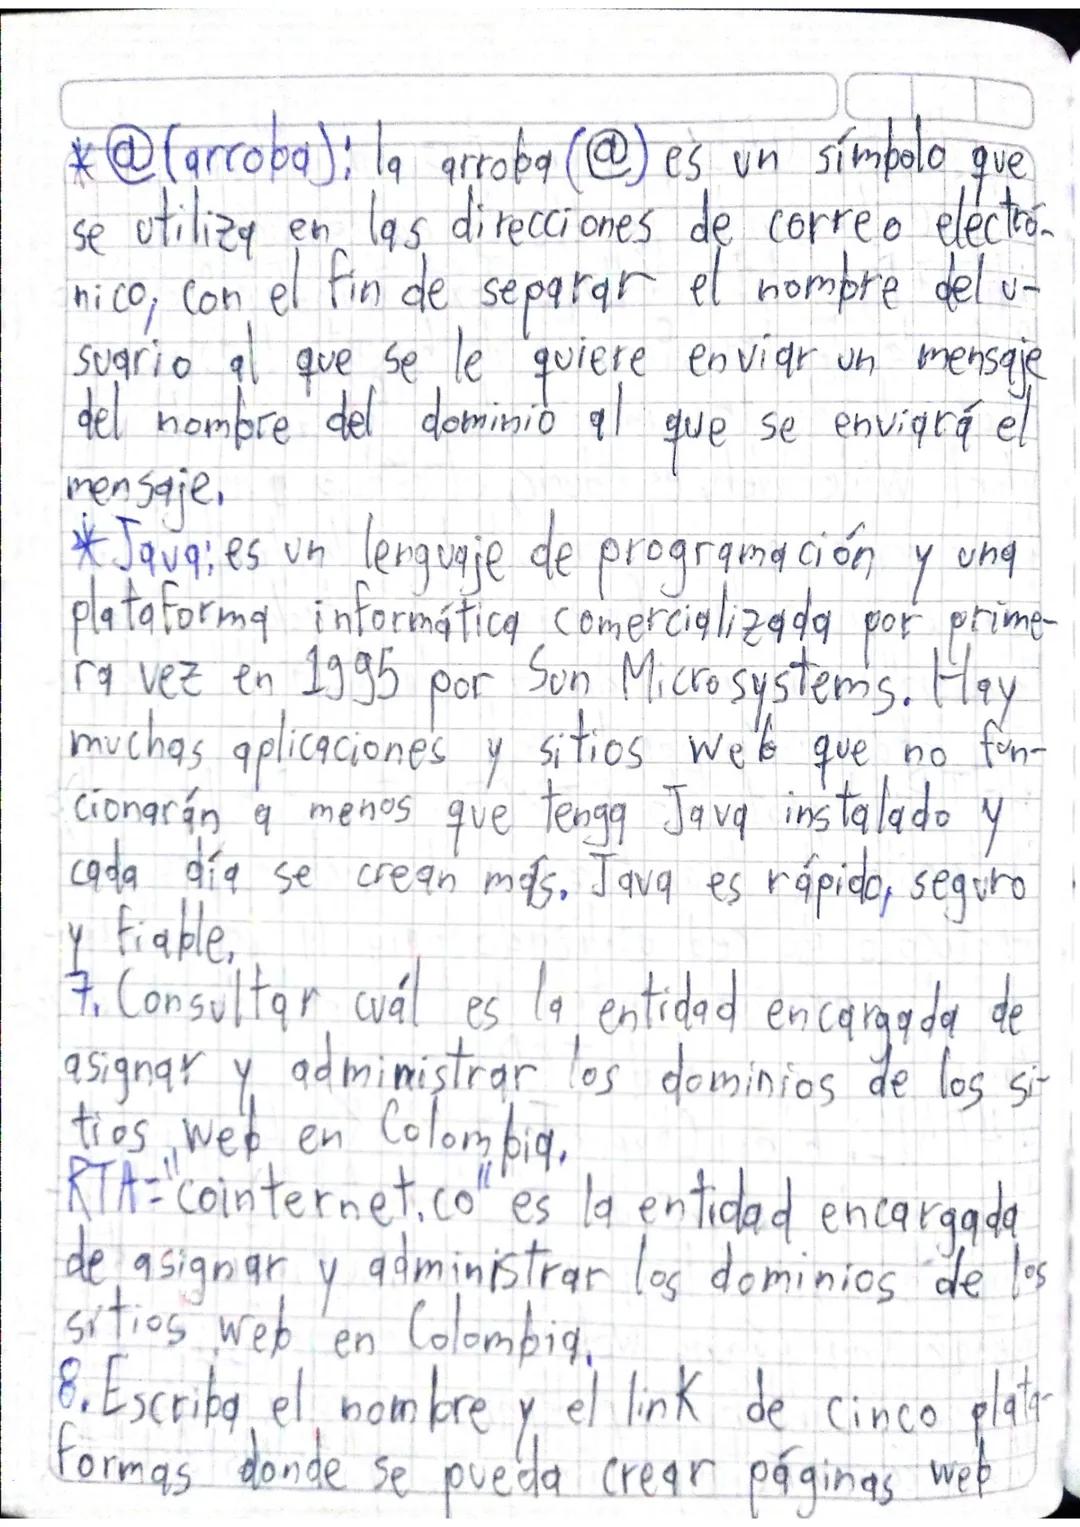 * @ (arroba): la arroba (@) es un símbolo que
se utiliza en las direcciones de correo electró-
nico, con el fin de separar el nombre del u-
suario al que se le quiere enviar un mensaje
del nombre del dominio al que se enviará el
mensaje.
* Java: es un lenguaje de programación y una
plataforma informática comercializada por prime-
ra vez en 1995 por Sun Microsystems. Hay
muchas aplicaciones y sitios web que no fun-
cionarán a menos que tenga Java instalado y
cada día se crean más. Java es rápido, seguro
y fiable.
7. Consultar cuál es la entidad encargada de
asignar y administrar los dominios de los si-
tios web en Colombia.
RTA="cointernet.co" es la entidad encargada
de asignar y administrar los dominios de los
sitios web en Colombia.
8. Escriba el nombre y el link de cinco plata-
formas donde se pueda crear páginas web